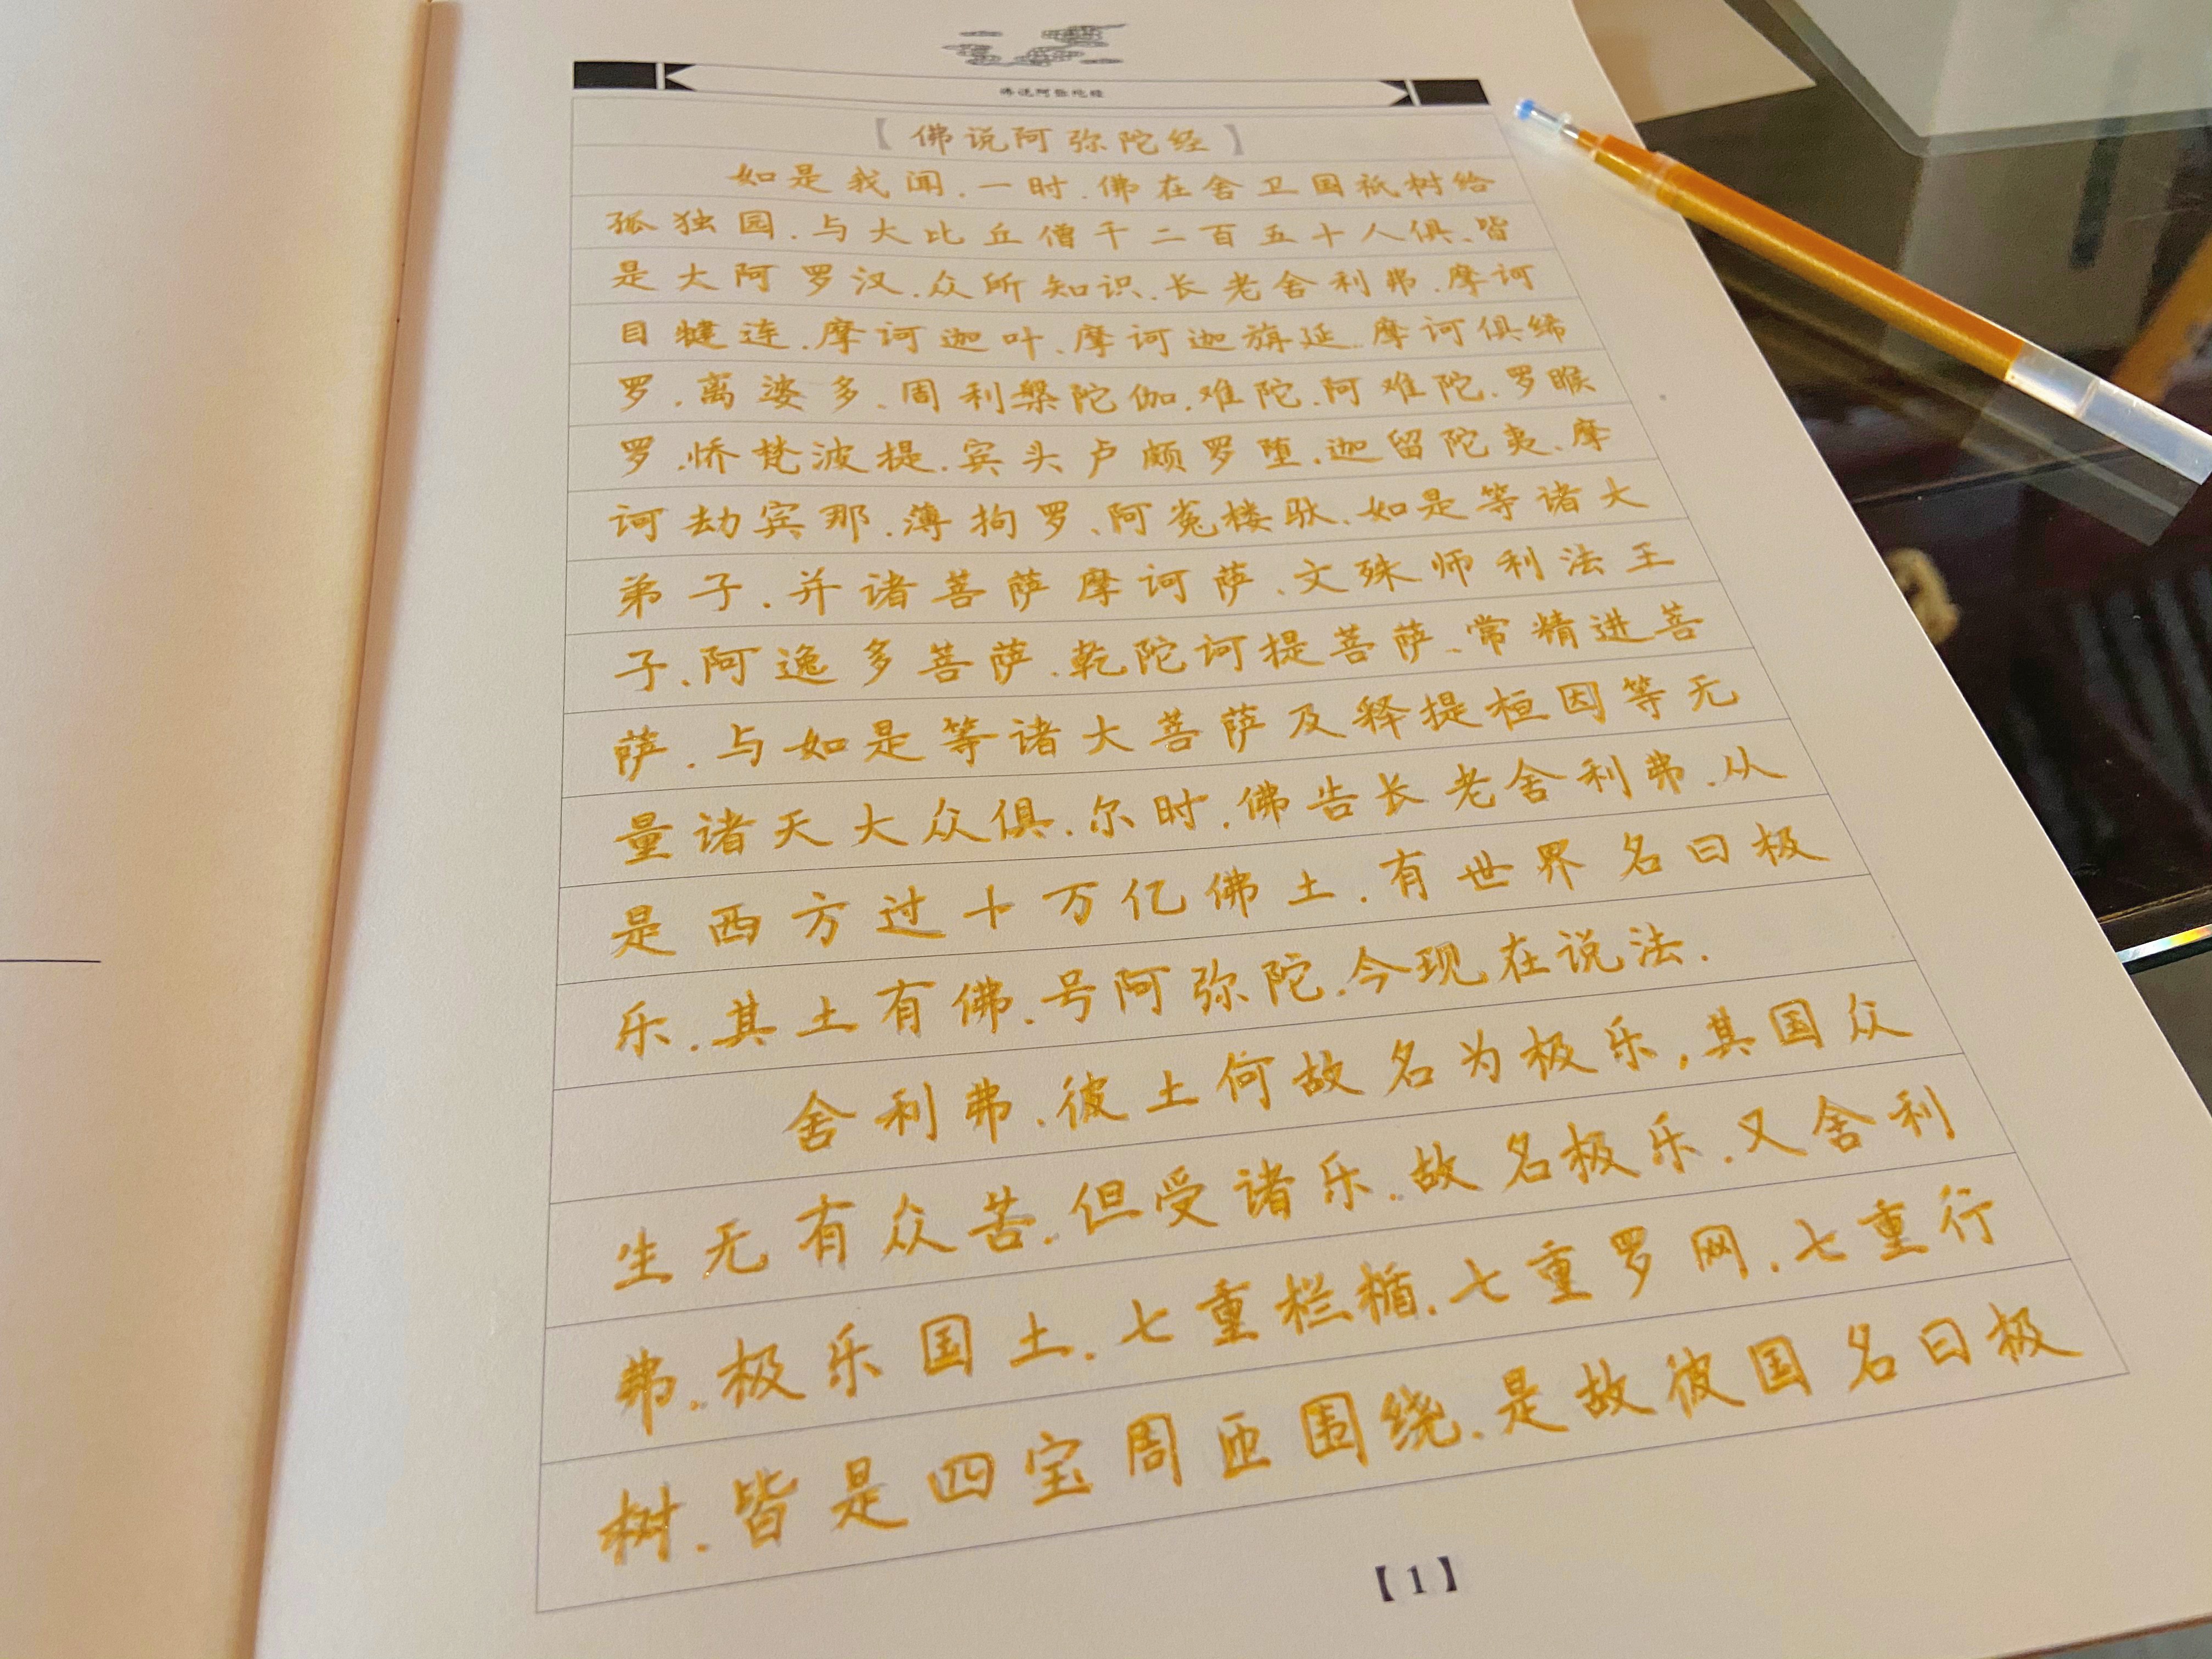 佛说阿弥陀经
【佛说阿弥陀经】
如是我闻.一时.佛在舍卫国祇树给
孤独园.与大比丘僧千二百五十人俱、皆
是大阿罗汉.众所知识.长老舍利弗.摩诃
目犍连.摩诃迦叶、摩诃迦旃延.摩诃俱絺
罗.离婆多、周利槃陀伽.难陀.阿难陀.罗睺
罗.憍梵波提.宾头卢颇罗堕.迦留陀夷、摩
诃劫宾那.薄拘罗、阿㝹楼驮.如是等诸大
弟子.并诸菩萨摩诃萨、文殊师利法王
子.阿逸多菩萨.乾陀诃提菩萨、常精进菩
萨.与如是等诸大菩萨及释提桓因等无
量诸天大众俱.尔时.佛告长老舍利弗.从
是西方过十万亿佛土.有世界名曰极
乐.其土有佛.号阿弥陀.今现在说法.
舍利弗.彼土何故名为极乐.其国众
生无有众苦.但受诸乐.故名极乐.又舍利
弗.极乐国土.七重栏楯.七重罗网.七重行
树.皆是四宝周匝围绕.是故彼国名曰极
【1】